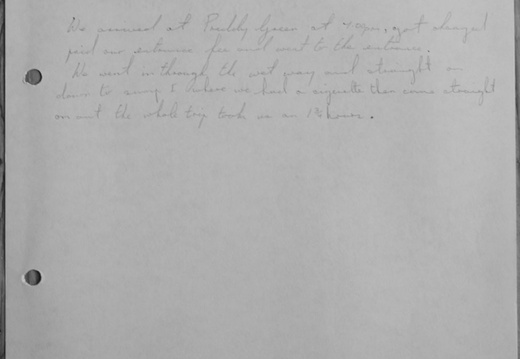 We arrived at Priddy Green at 7.0pm, got changed
paid our entrance fee and went to the entrance.
We went in through the wet way and straight on
down to sump I where we had a cigarette then came straight
on out the whole trip took us on 1¾ hours.